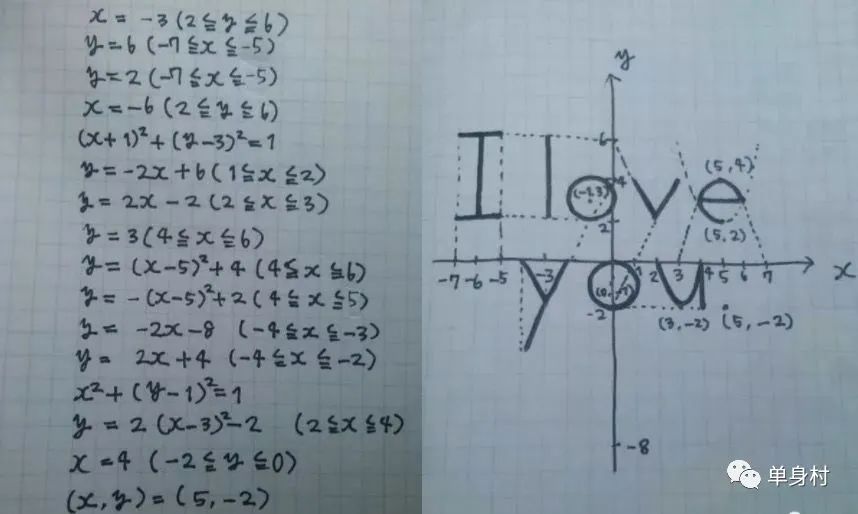 x = -3 (2 ≦ y ≦ 6)
y = 6 (-7 ≦ x ≦ -5)
y = 2 (-7 ≦ x ≦ -5)
x = -6 (2 ≦ y ≦ 6)
(x+1)² + (y-3)² = 1
y = -2x + 6 (1 ≦ x ≦ 2)
y = 2x - 2 (2 ≦ x ≦ 3)
y = 3 (4 ≦ x ≦ 6)
y = (x-5)² + 4 (4 ≦ x ≦ 6)
y = -(x-5)² + 2 (4 ≦ x ≦ 5)
y = -2x - 8 (-4 ≦ x ≦ -3)
y = 2x + 4 (-4 ≦ x ≦ -2)
x² + (y-1)² = 1
y = 2 (x-3)² - 2 (2 ≦ x ≦ 4)
x = 4 (-2 ≦ y ≦ 0)
(x, y) = (5, -2)
y
6
I love
(5, 4)
4
(-1,3)
2
(5, 2)
-7 -6 -5 -3 1 2 3 4 5 6 7 x
you
(0,-1)
-2
(3, -2) (5, -2)
-8
单身村